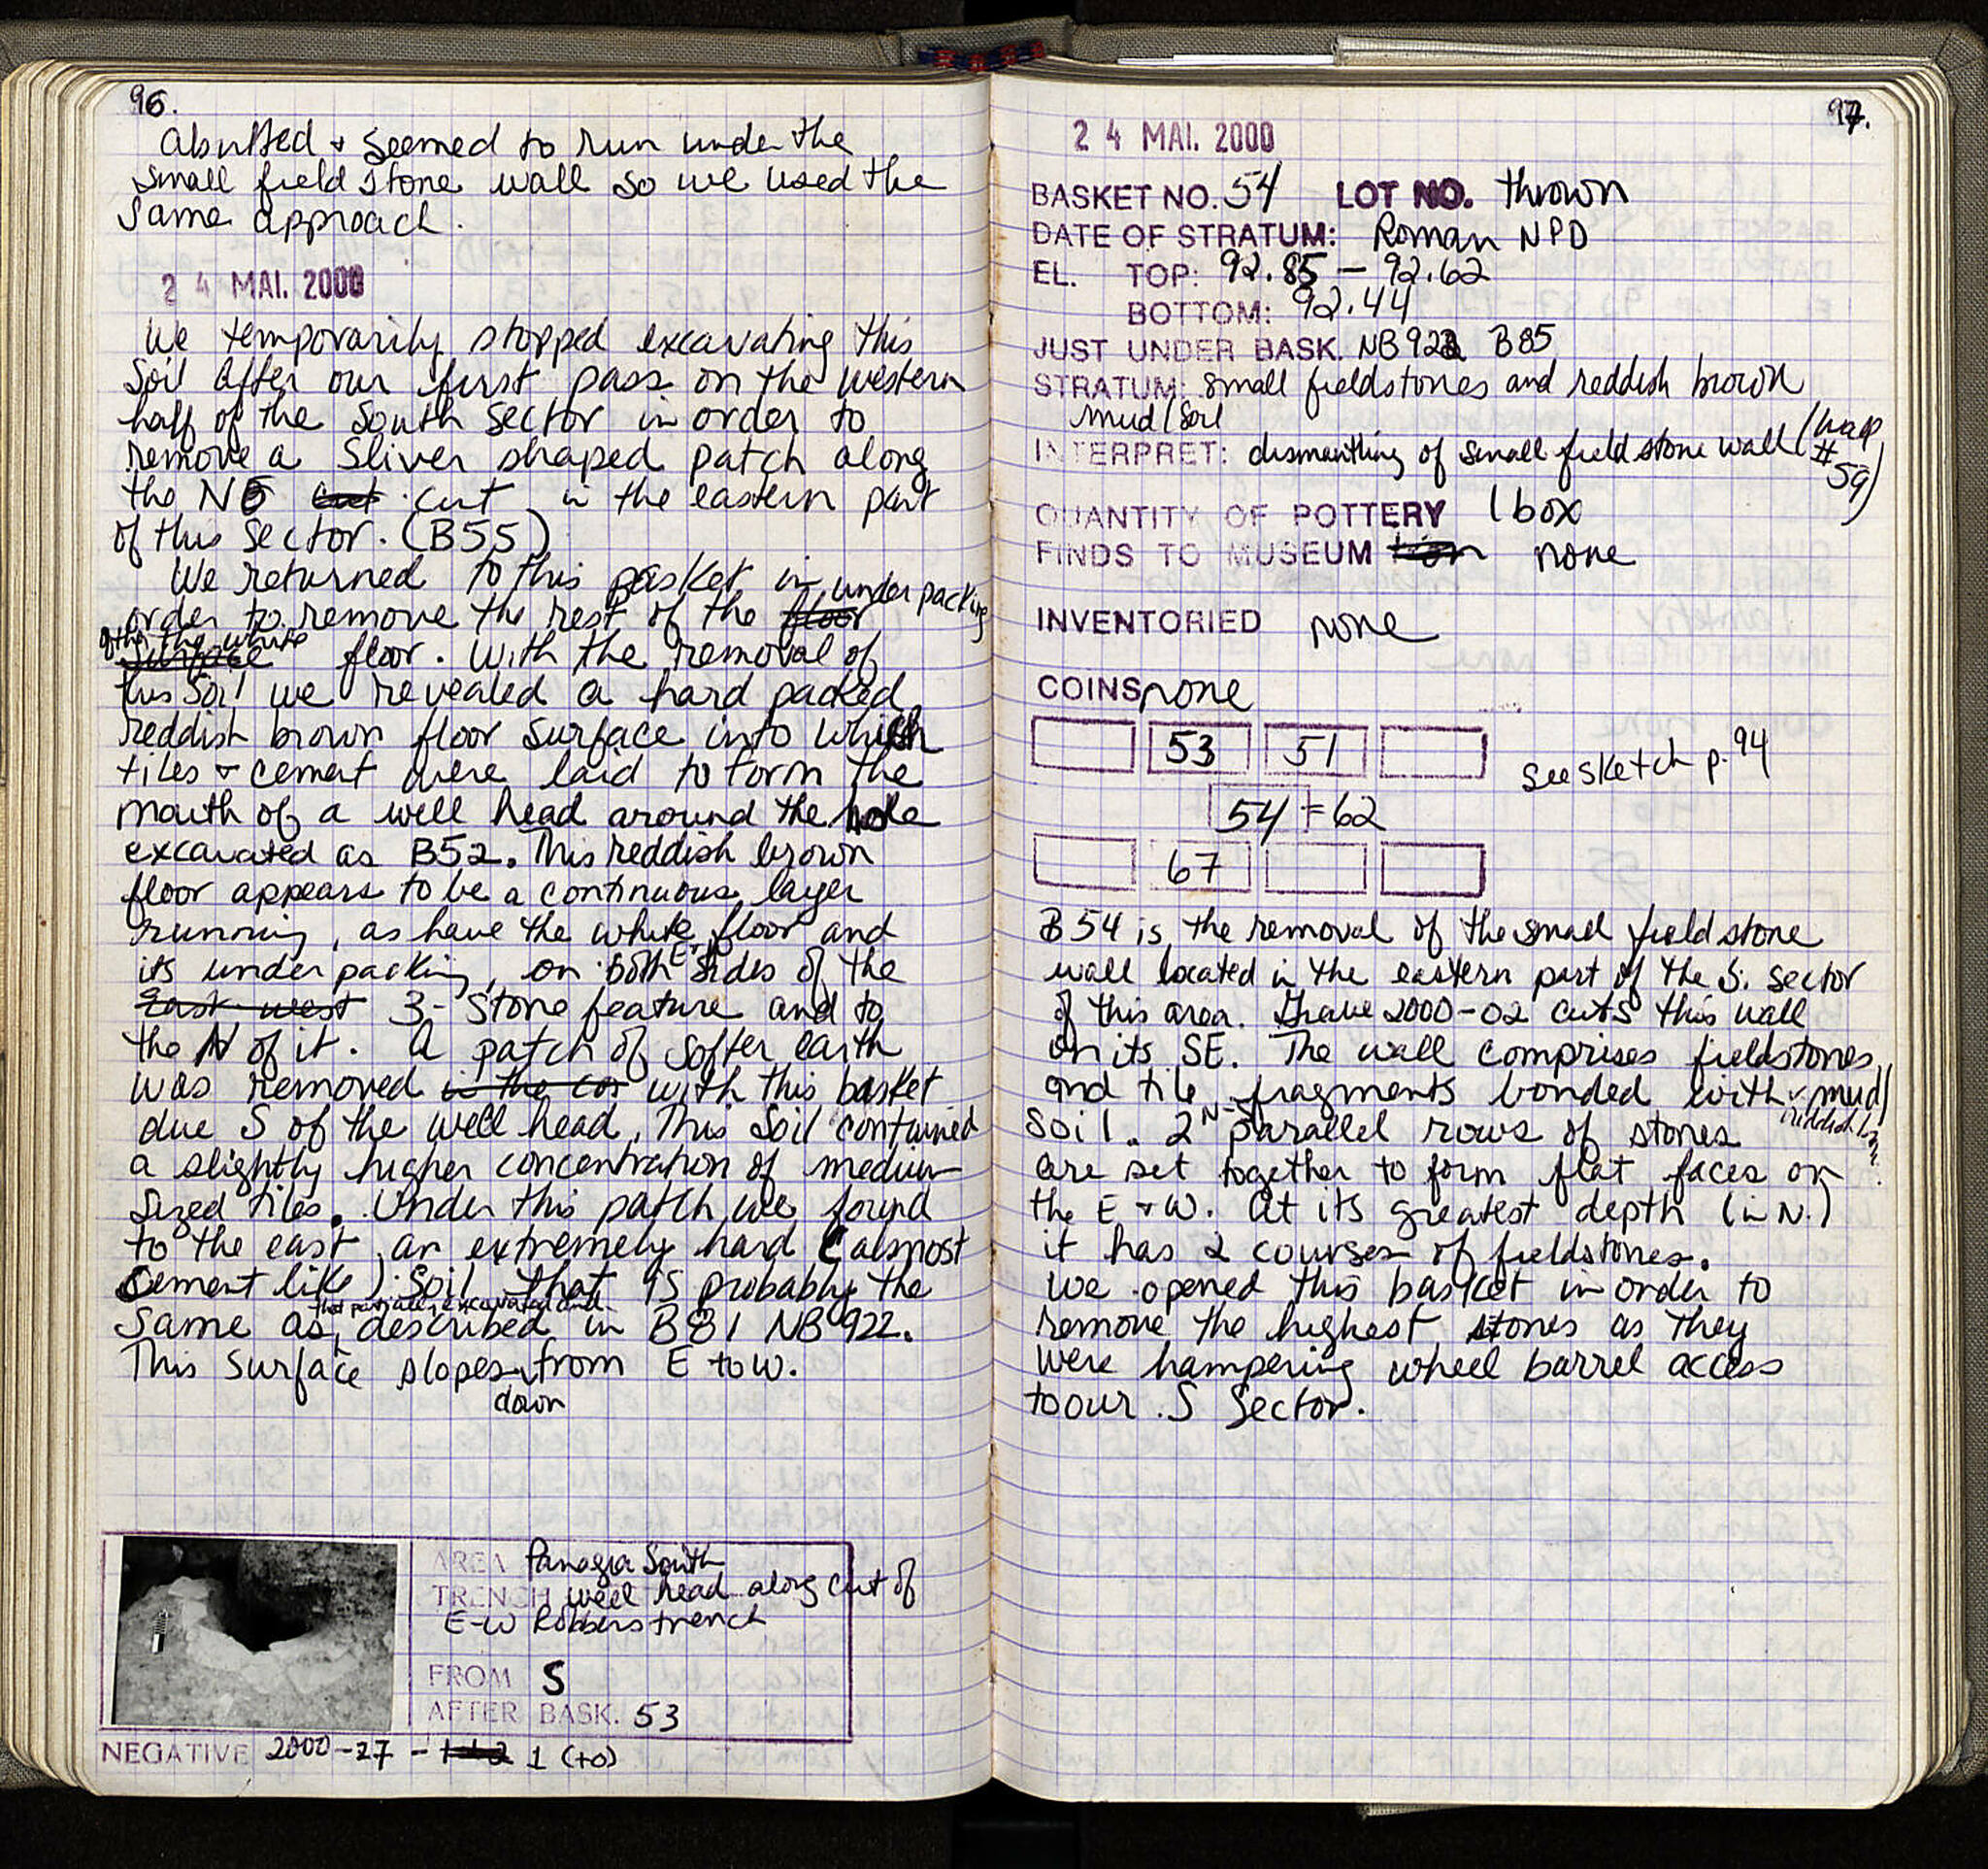 96.
abutted + seemed to run under the
small field stone wall so we used the
same approach.
2 4 MAI. 2000
We temporarily stopped excavating this
soil after our first pass on the western
half of the South Sector in order to
remove a sliver shaped patch along
the NE cut cut in the eastern part
of this sector. (B55)
We returned to this basket in
order to remove the rest of the floor under packing
surface of the the white floor. With the removal of
this soil we revealed a hard packed
reddish brown floor surface into which
tiles + cement were laid to form the
mouth of a well head around the hole
excavated as B52. This reddish brown
floor appears to be a continuous layer
running, as have the white floor and
its under packing, on both E. sides of the
East west 3-stone feature and to
the N of it. A patch of softer earth
was removed is the cor with this basket
due S of the well head. This soil contained
a slightly higher concentration of medium
sized tiles. Under this patch we found
to the east, an extremely hard (almost
cement like) soil that is probably the
same as that partially excavated and described in B81 NB 922.
This surface slopes down from E to W.
AREA Panagia South
TRENCH well head along cut of
E-W Robbers trench
FROM S
AFTER BASK. 53
NEGATIVE 2000-27 - 1 (+0)
97.
2 4 MAI. 2000
BASKET NO. 54 LOT NO. thrown
DATE OF STRATUM: Roman NPD
EL. TOP: 92.85 - 92.62
BOTTOM: 92.44
JUST UNDER BASK. NB922 B85
STRATUM: small fieldstones and reddish brown
mud/soil
INTERPRET: dismantling of small field stone wall (wall
# 59)
QUANTITY OF POTTERY 1 box
FINDS TO MUSEUM none
INVENTORIED none
COINS none
53 51
see sketch p. 94
54 = 62
67
B54 is the removal of the small field stone
wall located in the eastern part of the S. sector
of this area. Grave 2000-02 cuts this wall
on its SE. The wall comprises fieldstones
and tile fragments bonded with reddish br. mud/
soil. 2 N-S parallel rows of stones
are set together to form flat faces on
the E + W. At its greatest depth (in N.)
it has 2 courses of fieldstones.
We opened this basket in order to
remove the highest stones as they
were hampering wheel barrel access
to our S Sector.